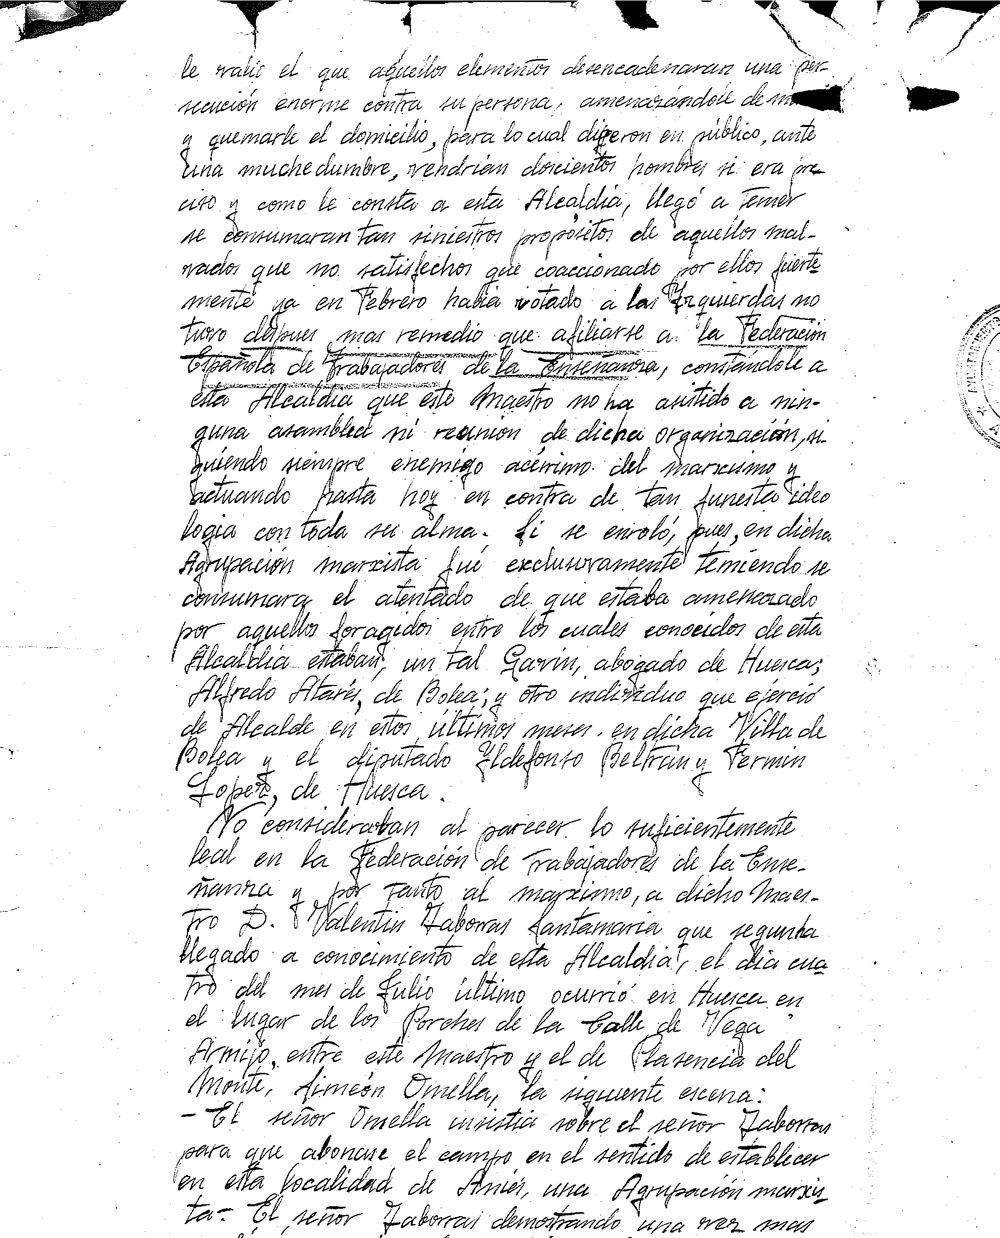 le valió el que aquellos elementos desencadenaran una per-
secución enorme contra su persona, amenazándole de
y quemarle el domicilio, para lo cual digeron en público, ante
una muchedumbre, vendrían doscientos hombres si era pre-
ciso y como le consta a esta Alcaldía, llegó a temer
se consumaran tan siniestros propósitos de aquellos mal-
vados que no satisfechos que coaccionado por ellos fuerte-
mente ya en Febrero había votado a las Izquierdas no
tuvo despues mas remedio que afiliarse a la Federación
Española de Trabajadores de la Enseñanza, constándole a
esta Alcaldía que este Maestro no ha asistido a nin-
guna asamblea ni reunión de dicha organización, si-
guiendo siempre enemigo acérrimo del marxismo y
actuando hasta hoy en contra de tan funesta ideo
logia con toda su alma. Si se enroló, pues, en dicha
Agrupación marxista fué exclusivamente temiendo se
consumara el atentado de que estaba amenazado
por aquellos foragidos entre los cuales conocidos de esta
Alcaldía estaban, un tal Gavín, abogado de Huesca;
Alfredo Atarés, de Bolea; y otro individuo que ejerció
de Alcalde en estos últimos meses en dicha Villa de
Bolea y el diputado Ildefonso Beltrán y Fermín
Lopez, de Huesca.
No consideraban al parecer lo suficientemente
leal en la Federación de Trabajadores de la Ense-
ñanza y por tanto al marxismo, a dicho Maes-
tro D. Valentin Zaborras Santamaría que segun ha
llegado a conocimiento de esta Alcaldía, el día cua
tro del mes de Julio último ocurrió en Huesca en
el lugar de los Porches de la Calle de Vega
Armijo, entre este Maestro y el de Plasencia del
Monte, Simeón Omella, la siguiente escena:
- El señor Omella insistía sobre el señor Zaborras
para que abonase el campo en el sentido de establecer
en esta localidad de Aniés, una Agrupación marxis
ta- El señor Zaborras demostrando una vez mas